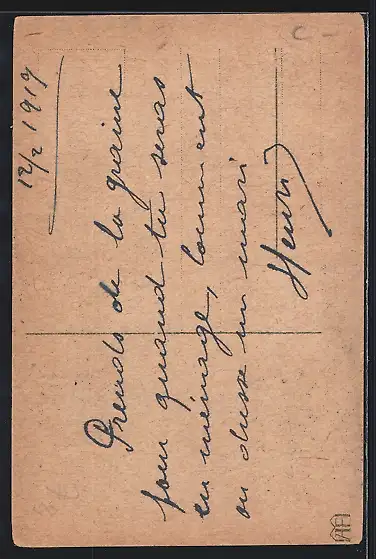 12/2 1919
Prends de la graine
pour quand tu seras
en ménage, comment
on dresse un mari
Henri